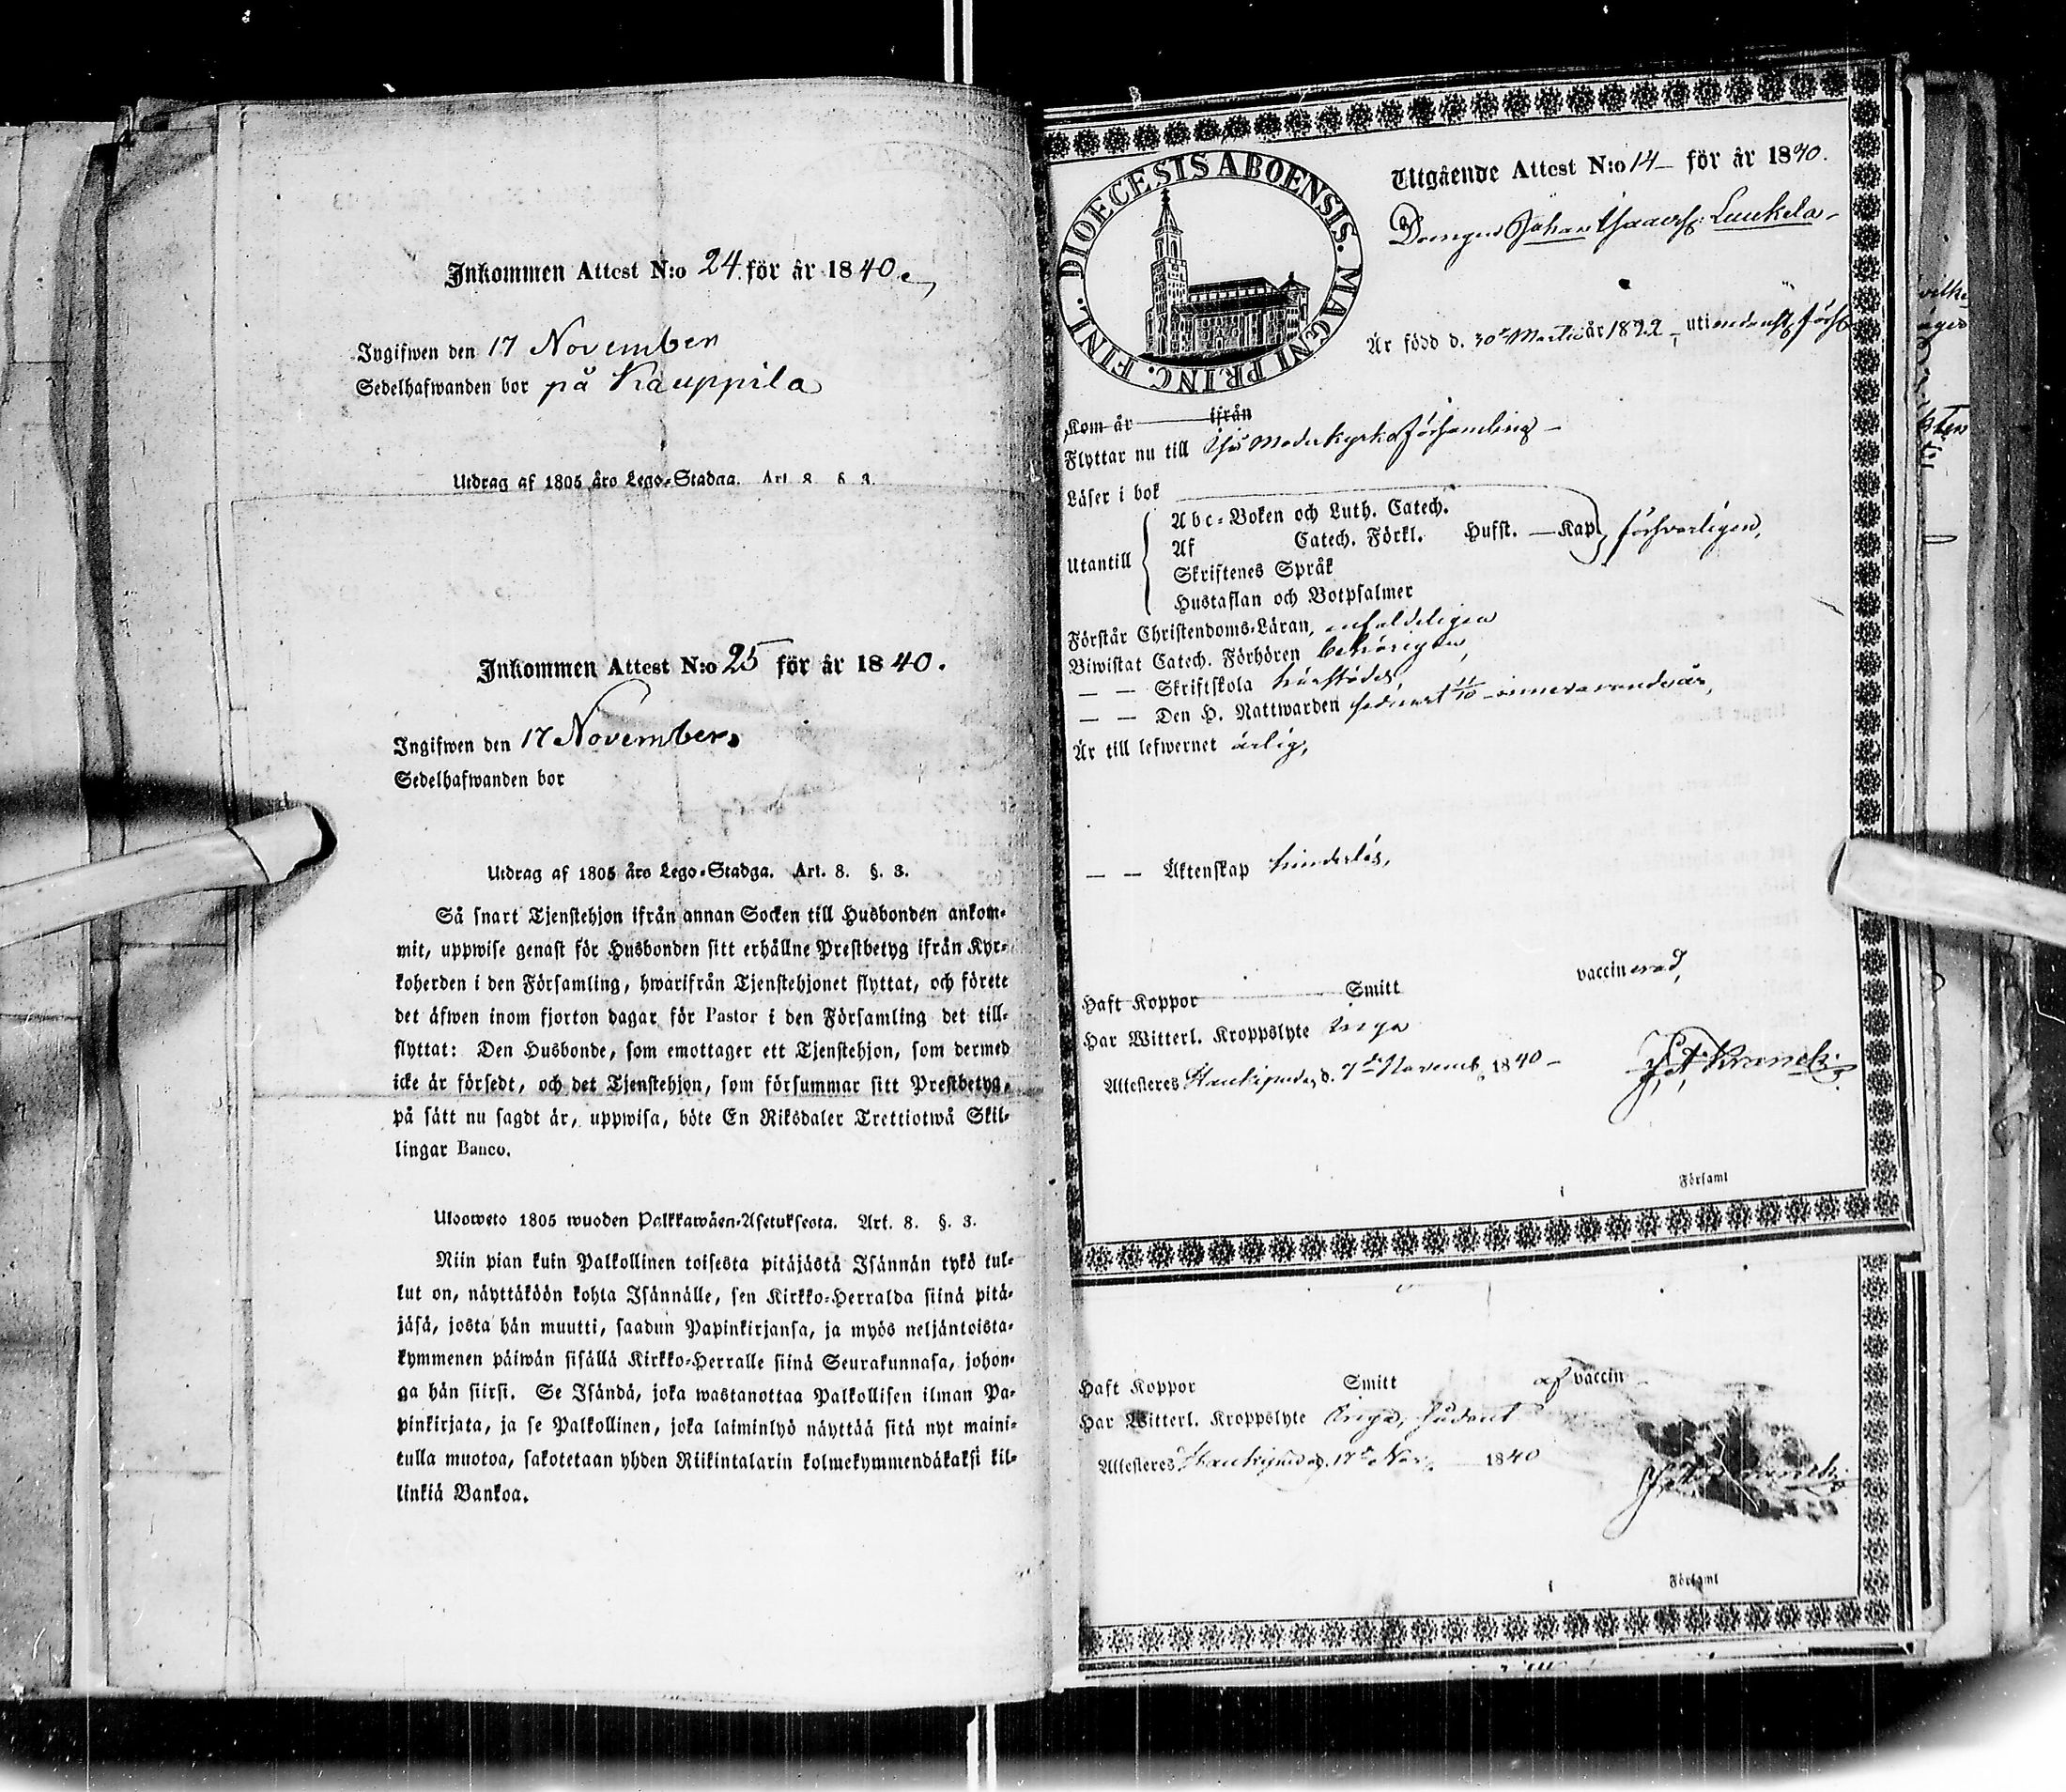 Inkommen Attest N:o 24 för år 1840.
Ingifwen den 17 November
Sedelhafwanden bor på Kauppila
Utdrag af 1805 års Lego-Stadga. Art. 8. §. 3.
Inkommen Attest N:o 25 för år 1840.
Ingifwen den 17 November.
Sedelhafwanden bor
Utdrag af 1805 års Lego-Stadga. Art. 8. §. 3.
Så snart Tjenstehjon ifrån annan Socken till Husbonden ankom-
mit, uppwise genast för Husbonden sitt erhållne Prestbetyg ifrån Kyr-
koherden i den Församling, hwarifrån Tjenstehjonet flyttat, och förete
det äfwen inom fjorton dagar för Pastor i den Församling det till-
flyttat: Den Husbonde, som emottager ett Tjenstehjon, som dermed
icke är försedt, och det Tjenstehjon, som försummar sitt Prestbetyg,
på sätt nu sagdt är, uppwisa, böte En Riksdaler Trettiotwå Skil-
lingar Banco.
Ulosweto 1805 wuoden Palkkawäen-Asetuksesta. Art. 8. §. 3.
Niin pian kuin Palkollinen toisesta pitäjästä Isännän tykö tul-
lut on, näyttäköön kohta Isännälle, sen Kirkko-Herralda siinä pitä-
jäsä, josta hän muutti, saadun Papinkirjansa, ja myös neljäntoista-
kymmenen päiwän sisällä Kirkko-Herralle siinä Seurakunnasa, johon-
ga hän siirsi. Se Isändä, joka wastanottaa Palkollisen ilman Pa-
pinkirjata, ja se Palkollinen, joka laiminlyö näyttää sitä nyt maini-
tulla muotoa, sakotetaan yhden Riikintalarin kolmekymmendäkaksi kil-
linkiä Bankoa.
DIOECESIS ABOENSIS. MAGNI PRINC. FINL.
Utgående Attest N:o 14 för år 1840.
Drengen Johan Isaacss. Luukela
Är född d. 30 Martii år 1822, uti
Kom år ifrån
Flyttar nu till Moderkyrko församling
Läser i bok
Utantill
Abc-Boken och Luth. Catech.
Af Catech. Förkl. Hufst. Kap. försvarligen,
Skriftenes Språk
Hustaflan och Botpsalmer
Förstår Christendoms-Läran, enfaldeligen
Biwistat Catech. Förhören behörigen,
— — Skriftskola härstädes
— — Den H. Nattwarden sednast 11/10 innevarande år,
Är till lefwernet ärlig,
— — Äktenskap hinderlös,
Haft Koppor Smitt vaccinerad,
Har Witterl. Kroppslyte Inga
Attesteres d. 7de Novemb. 1840
Församl
i
Haft Koppor Smitt vaccin
Har Witterl. Kroppslyte Inga,
Attesteres d. 17de Nov. 1840
i Församl